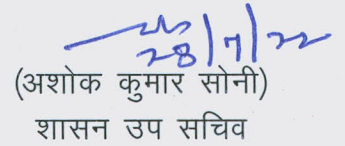 28/7/22
(अशोक कुमार सोनी)
शासन उप सचिव